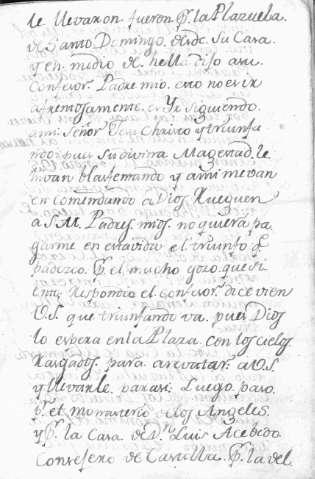 le llevaron fueron P.r la Plazuela
de Santo Domingo, desde su Casa
y en medio de hella dijo a su
Confesor. Padre mio, esto no es ir
afrentosamente, es Yr siguiendo
a mi Señor Jesu Christo y triunfa
ndo pues su Divina Magestad, le
ivan blasfemando y a mi me van
en comendando a Dios Rueguen
a S.M. Padres mios no quiera pa
garme en esta vida el triunfo q
padezco P.r el mucho gozo que si
ento, Respondio el confesor: dice vien
V.S. que triunfando va. pues Dios
lo espera en la Plaza con los cielos
Rasgados. para arrevatar. a V.S.
y llevarle para si. Luego paso
P.r el Monasterio de los Angeles.
y P.r la Casa de D.n Luis Acebedo
Consejero de Castilla P.r la del